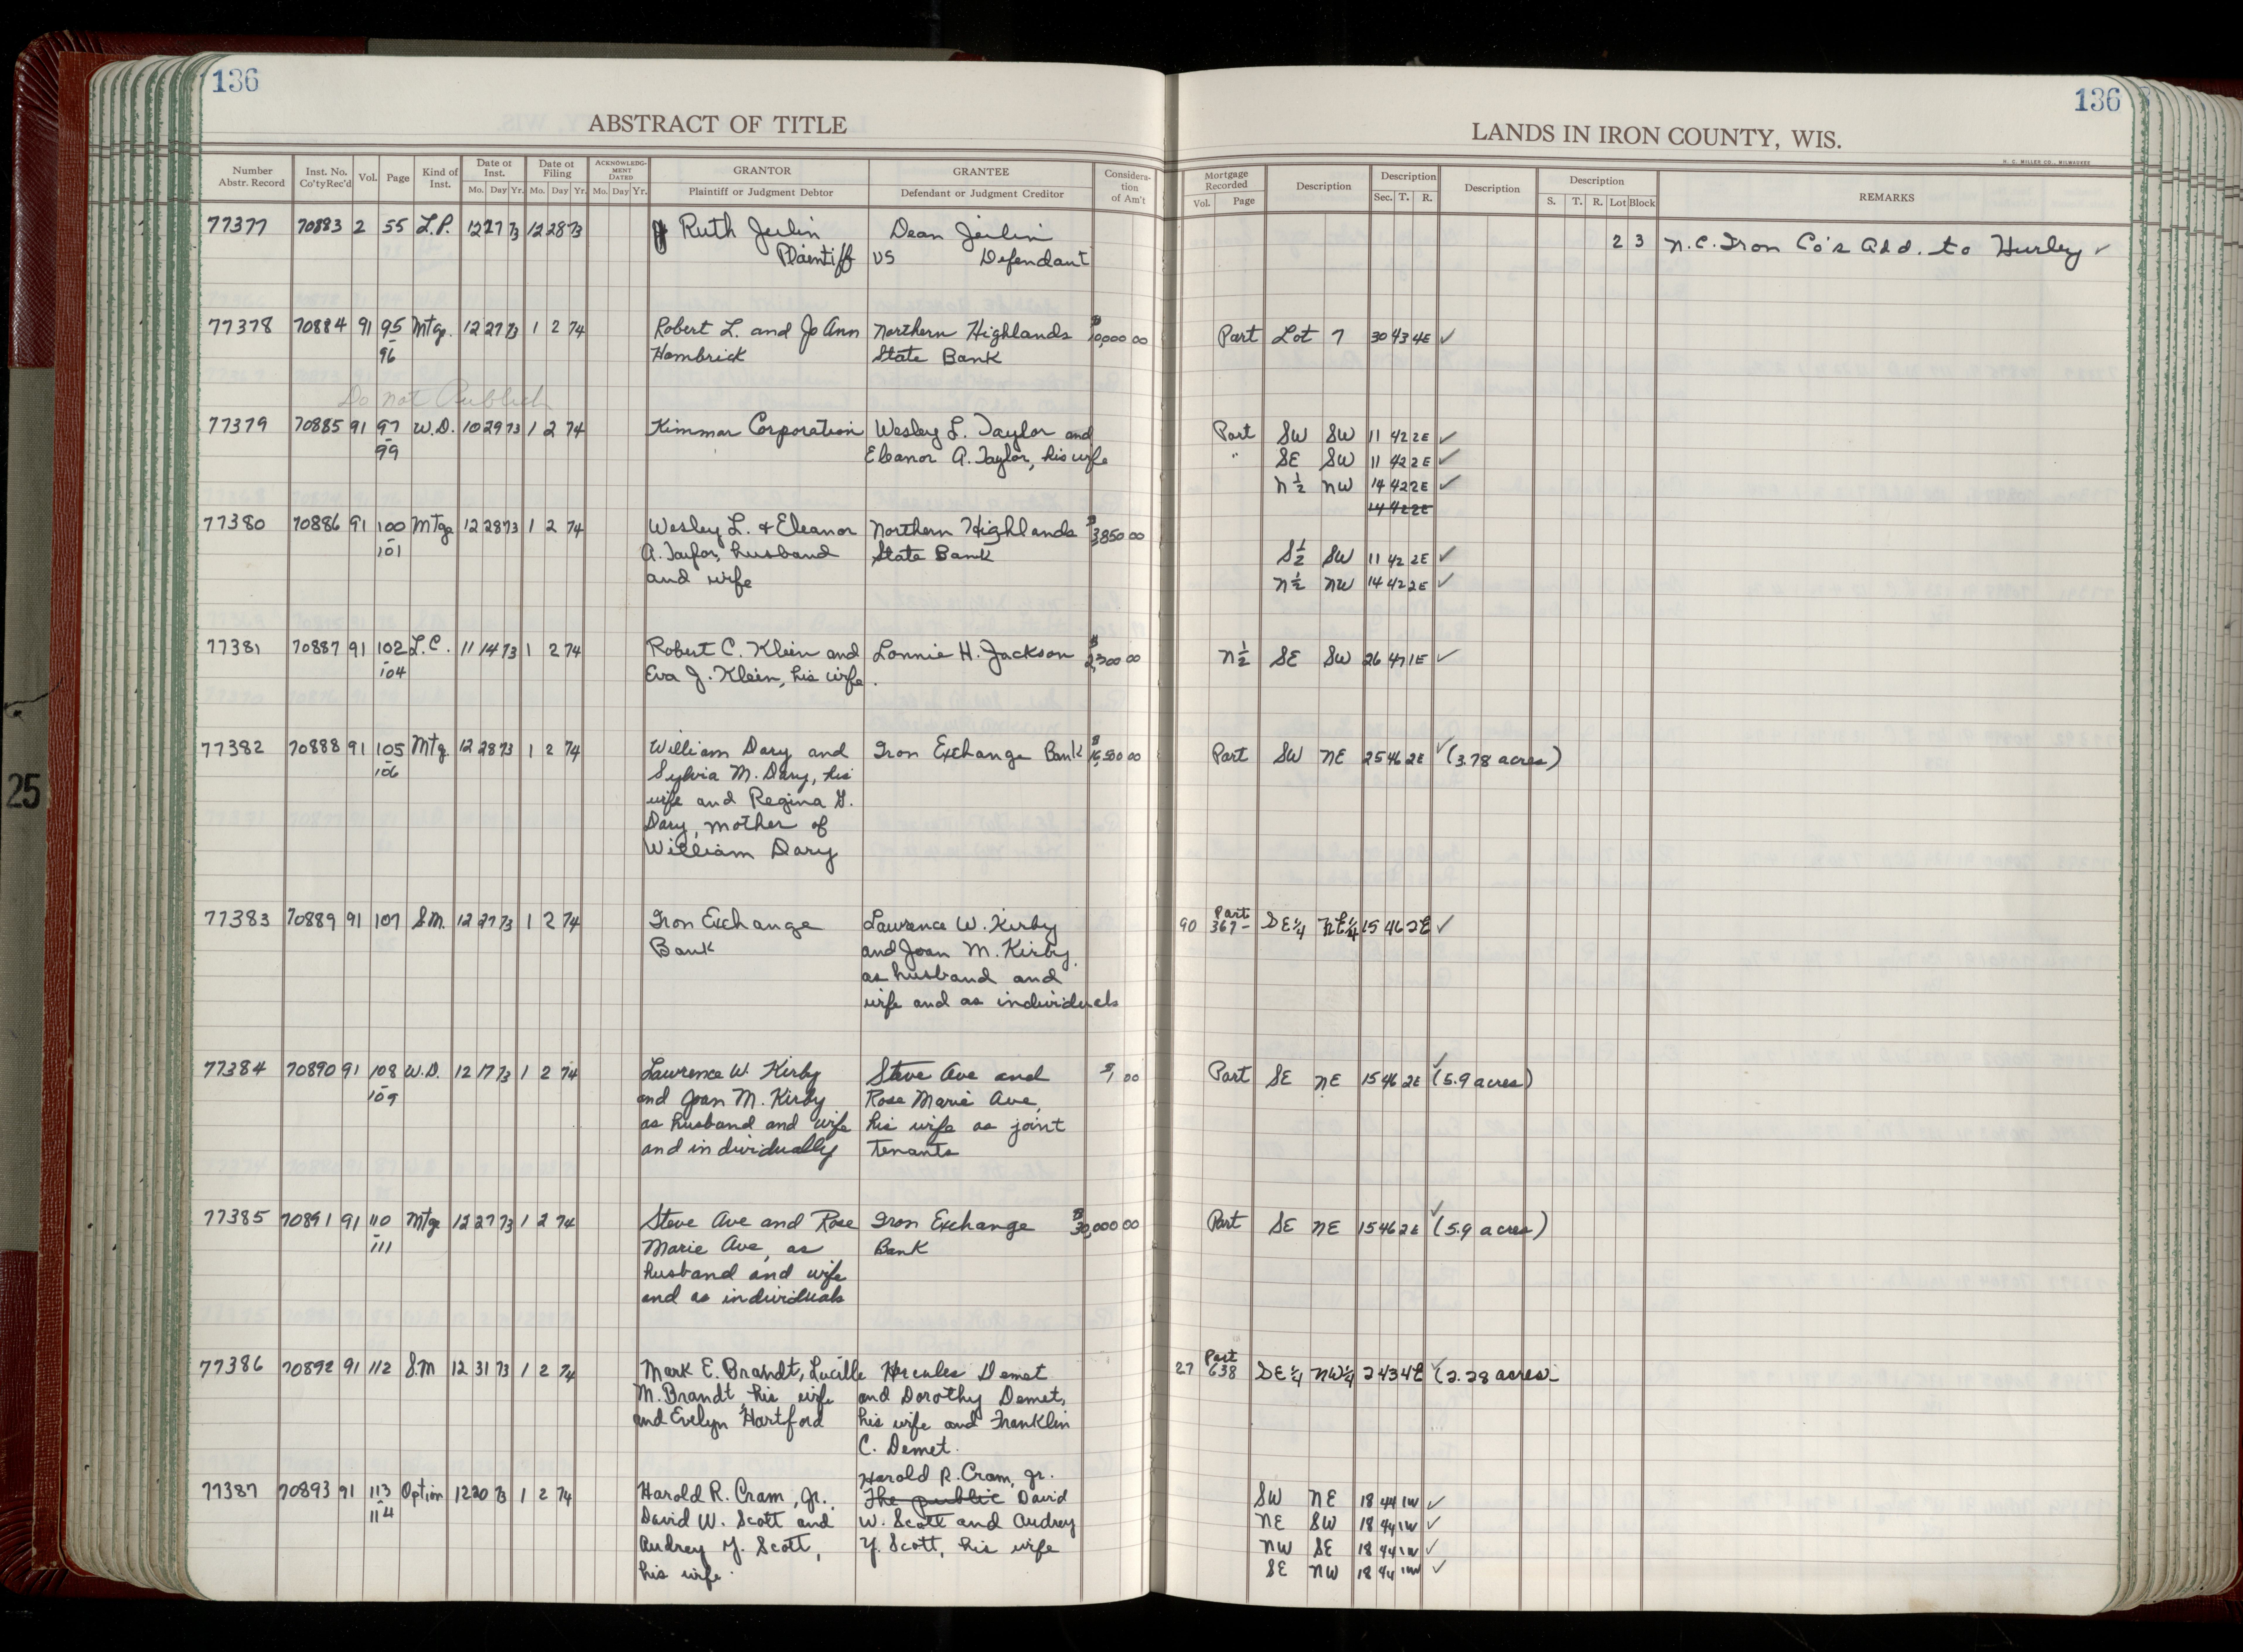 136
136
ABSTRACT OF TITLE
LANDS IN IRON COUNTY, WIS.
H. C. MILLER CO., MILWAUKEE
Number Abstr. Record | Inst. No. Co'tyRec'd | Vol. | Page | Kind of Inst. | Date of Inst. Mo. Day Yr. | Date of Filing Mo. Day Yr. | ACKNOWLEDG-MENT DATED Mo. Day Yr. | GRANTOR Plaintiff or Judgment Debtor | GRANTEE Defendant or Judgment Creditor | Considera-tion of Am't | Mortgage Recorded Vol. Page | Description | Description Sec. T. R. | Description | Description S. T. R. Lot Block | REMARKS
77377 70883 2 55 L.P. 12 27 73 12 28 73 Ruth Jeilin Dean Jeilin 2 3 N.C. Iron Co's Add. to Hurley ✓
Plaintiff vs Defendant
77378 70884 91 95 Mtge. 12 27 73 1 2 74 Robert L. and Jo Ann Northern Highlands $10,000 00 Part Lot 7 30 43 4E ✓
- 96 Hambrick State Bank
Do not Publish
77379 70885 91 97 W.D. 10 29 73 1 2 74 Kimmar Corporation Wesley L. Taylor and Part SW SW 11 42 2E ✓
- 99 Eleanor A. Taylor, his wife " SE SW 11 42 2E ✓
N½ NW 14 42 2E ✓
14 42 2E
77380 70886 91 100 Mtge 12 28 73 1 2 74 Wesley L. + Eleanor Northern Highlands $3,850 00
- 101 A. Taylor, husband State Bank S½ SW 11 42 2E ✓
and wife N½ NW 14 42 2E ✓
77381 70887 91 102 L.C. 11 14 73 1 2 74 Robert C. Klein and Lonnie H. Jackson $2,300 00 N½ SE SW 26 47 1E ✓
- 104 Eva J. Klein, his wife.
77382 70888 91 105 Mtg 12 28 73 1 2 74 William Dary and Iron Exchange Bank $16,500 00 Part SW NE 25 46 2E ✓ (3.78 acres)
- 106 Sylvia M. Dary, his
wife and Regina G.
Dary, mother of
William Dary
77383 70889 91 107 S.M. 12 27 73 1 2 74 Iron Exchange Lawrence W. Kirby 90 Part 367- SE¼ NE¼ 15 46 2E ✓
Bank and Joan M. Kirby,
as husband and
wife and as individuals
77384 70890 91 108 W.D. 12 17 73 1 2 74 Lawrence W. Kirby Steve Ave and $1 00 Part SE NE 15 46 2E ✓ (5.9 acres)
- 109 and Joan M. Kirby Rose Marie Ave,
as husband and wife his wife as joint
and individually tenants
77385 70891 91 110 Mtge 12 27 73 1 2 74 Steve Ave and Rose Iron Exchange $30,000 00 Part SE NE 15 46 2E ✓ (5.9 acres)
- 111 Marie Ave, as Bank
husband and wife
and as individuals
77386 70892 91 112 S.M 12 31 73 1 2 74 Mark E. Brandt, Lucille Hercules Demet 27 Part 638 SE¼ NW¼ 2 43 4E ✓ (2.28 acres-
M. Brandt, his wife and Dorothy Demet,
and Evelyn Hartford his wife and Franklin
C. Demet.
Harold R. Cram, Jr.
77387 70893 91 113 Option 12 20 73 1 2 74 Harold R. Cram, Jr., The public David SW NE 18 44 1W ✓
- 114 David W. Scott and W. Scott and Audrey NE SW 18 44 1W ✓
Audrey Y. Scott, Y. Scott, his wife NW SE 18 44 1W ✓
his wife. SE NW 18 44 1W ✓
25